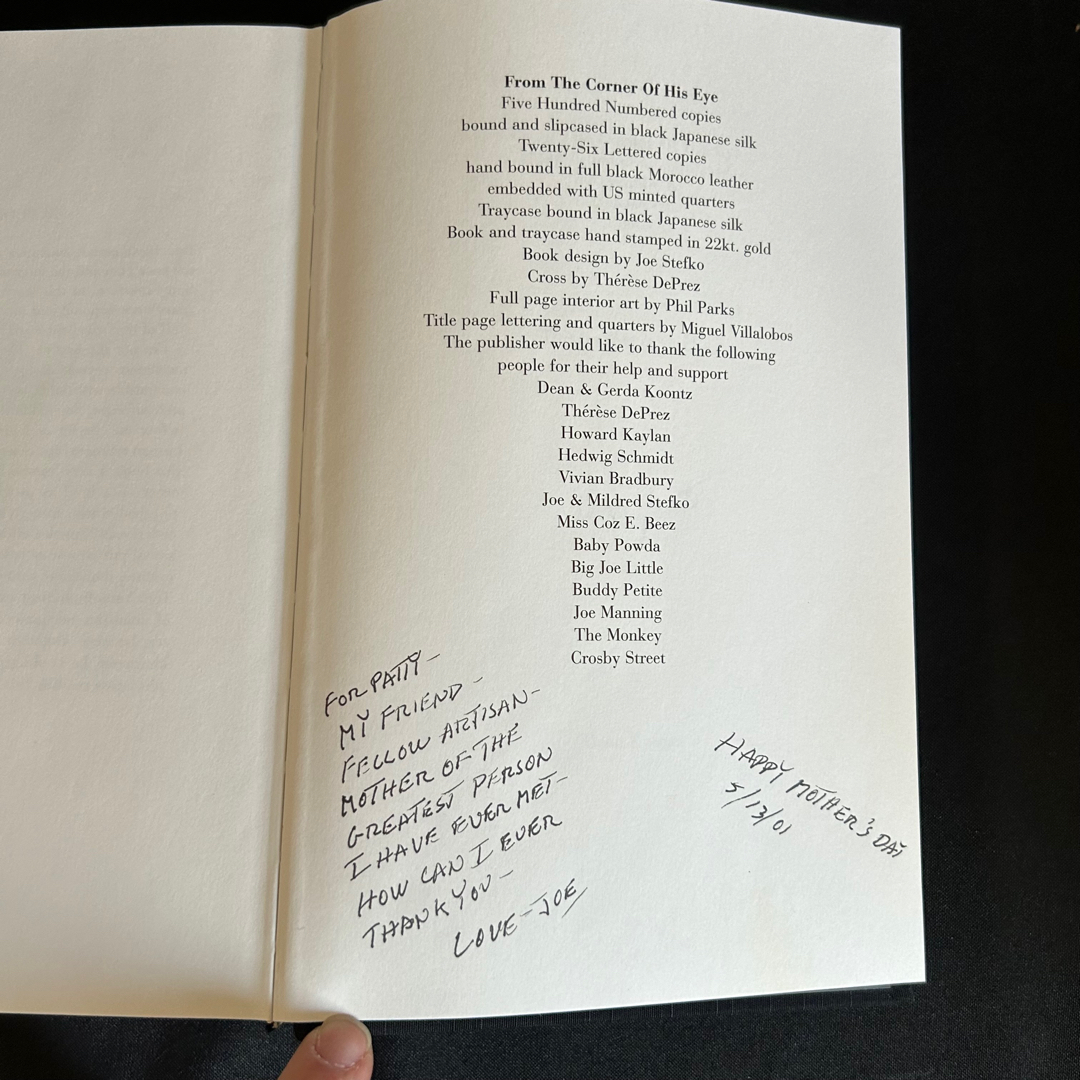 From The Corner Of His Eye
Five Hundred Numbered copies
bound and slipcased in black Japanese silk
Twenty-Six Lettered copies
hand bound in full black Morocco leather
embedded with US minted quarters
Traycase bound in black Japanese silk
Book and traycase hand stamped in 22kt. gold
Book design by Joe Stefko
Cross by Thérèse DePrez
Full page interior art by Phil Parks
Title page lettering and quarters by Miguel Villalobos
The publisher would like to thank the following
people for their help and support
Dean & Gerda Koontz
Thérèse DePrez
Howard Kaylan
Hedwig Schmidt
Vivian Bradbury
Joe & Mildred Stefko
Miss Coz E. Beez
Baby Powda
Big Joe Little
Buddy Petite
Joe Manning
The Monkey
Crosby Street
FOR PATTY –
MY FRIEND –
FELLOW ARTISAN –
MOTHER OF THE
GREATEST PERSON
I HAVE EVER MET –
HOW CAN I EVER
THANK YOU –
LOVE – JOE
HAPPY MOTHER'S DAY
5/13/01